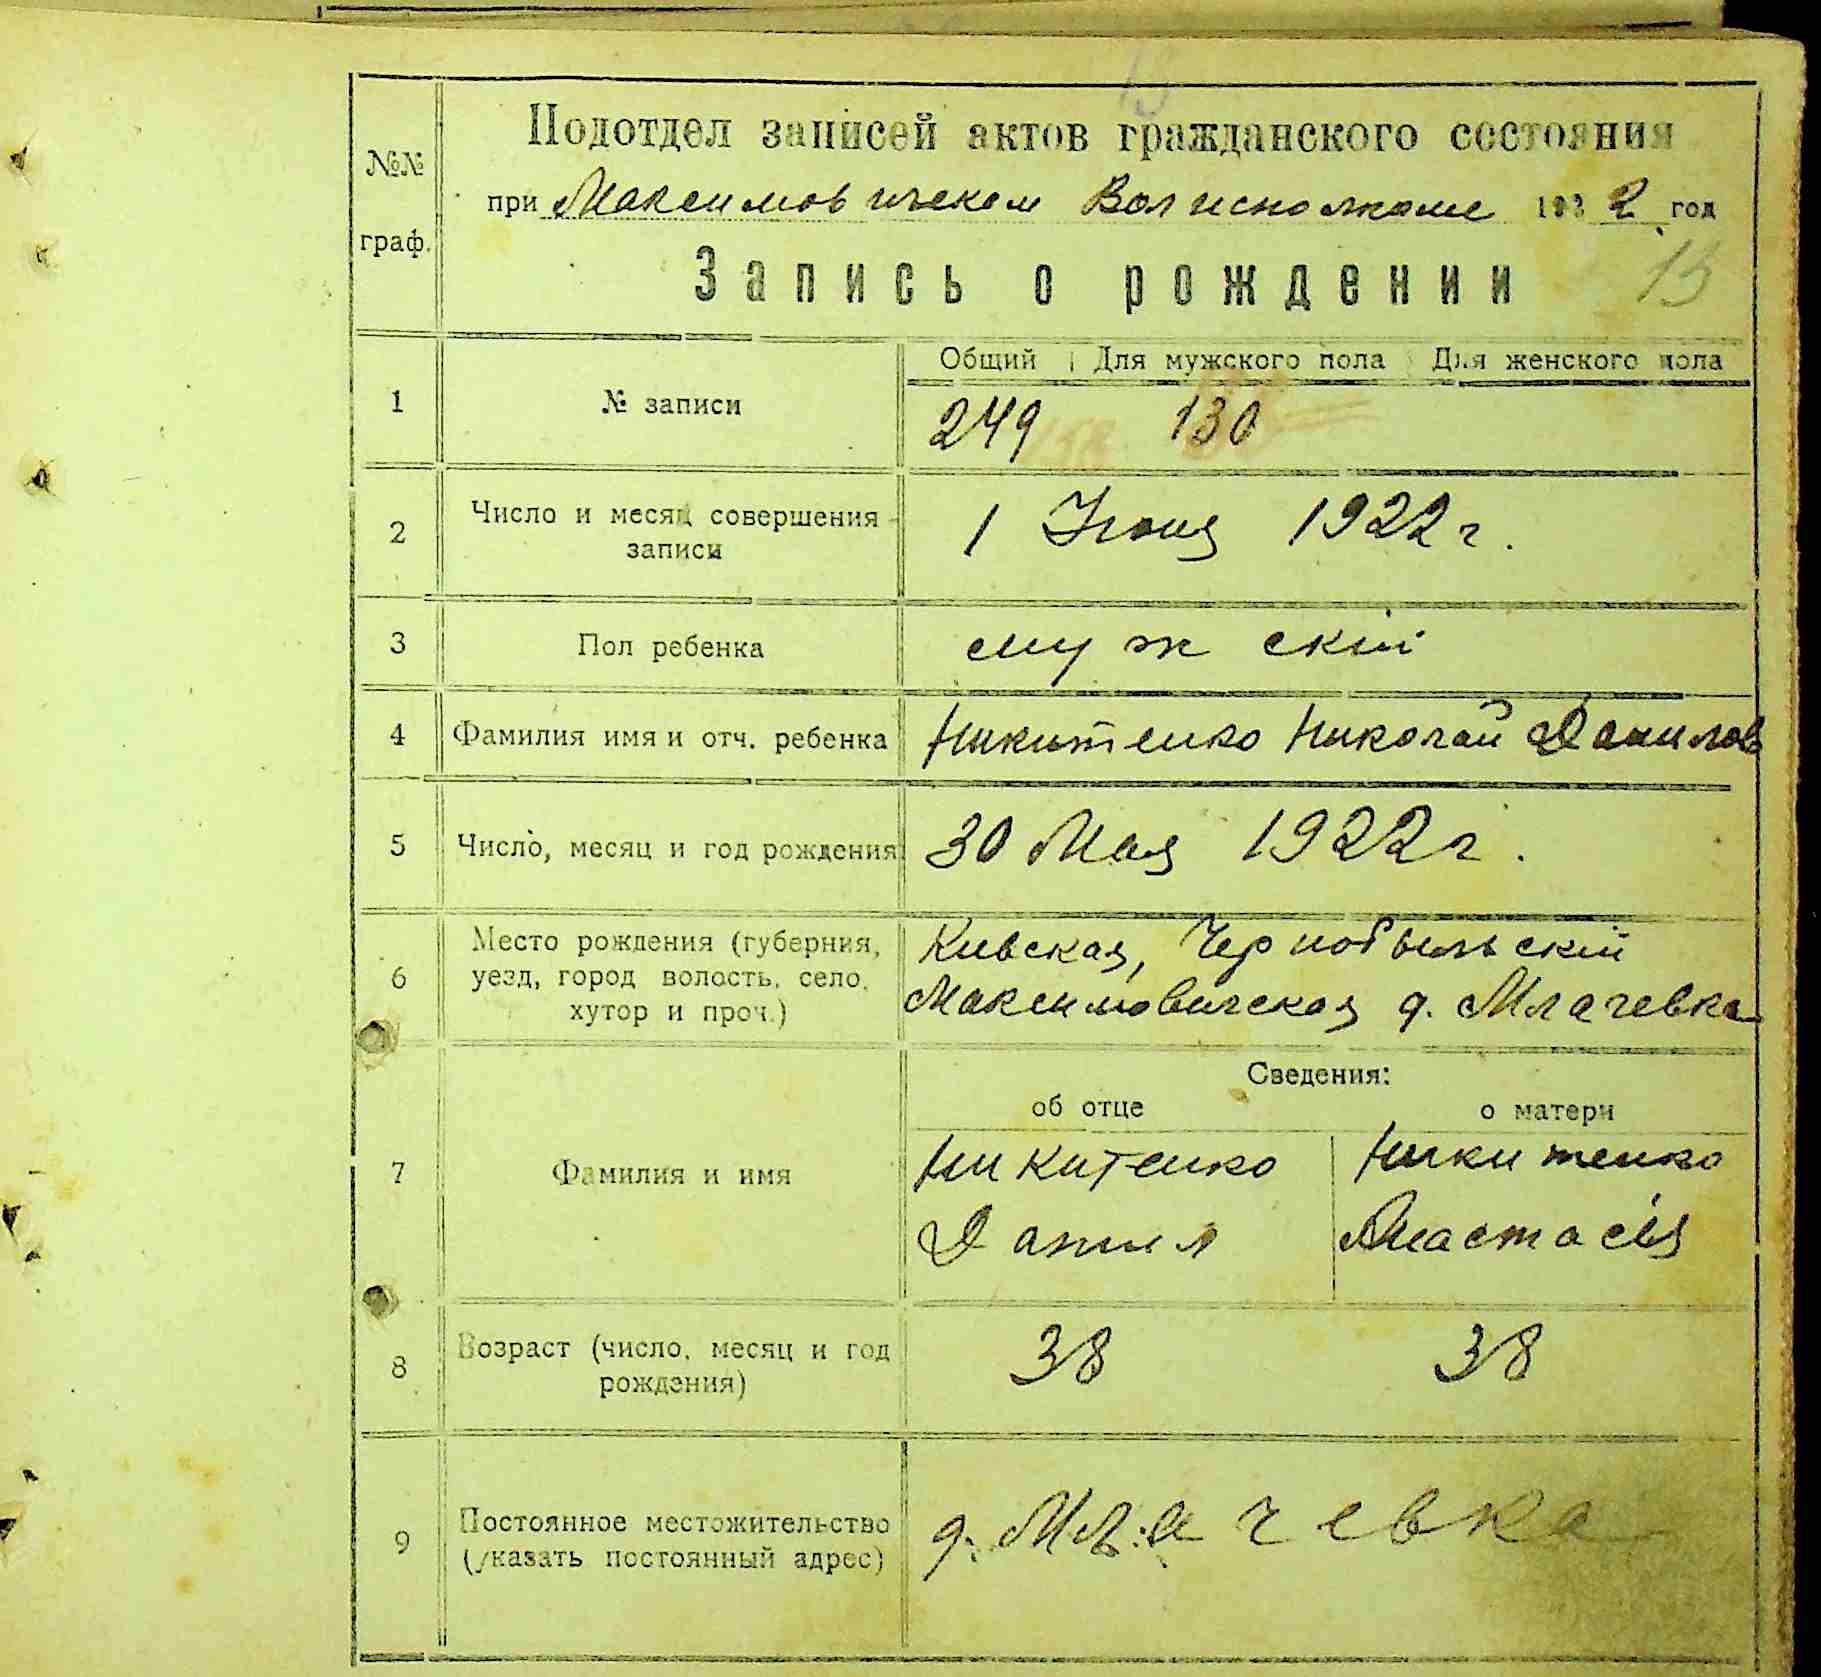 №№ граф.
Подотдел записей актов гражданского состояния
при Максимовичском Волисполкоме 1922 год
Запись о рождении
13
Общий Для мужского пола Для женского пола
1 № записи 249 130
2 Число и месяц совершения
записи
1 Июня 1922 г.
3 Пол ребенка мужскій
4 Фамилия имя и отч. ребенка Никитенко Николай Данилов
5 Число, месяц и год рождения 30 Мая 1922 г.
6 Место рождения (губерния,
уезд, город волость, село,
хутор и проч.)
Кивская, Чернобыльскій
Максимовичская д. Млачевка
Сведения:
об отце о матери
7 Фамилия и имя
Никитенко Никитенко
Данил Анастасія
8 Возраст (число, месяц и год
рождения)
38 38
9 Постоянное местожительство
(указать постоянный адрес)
д. Млачевка